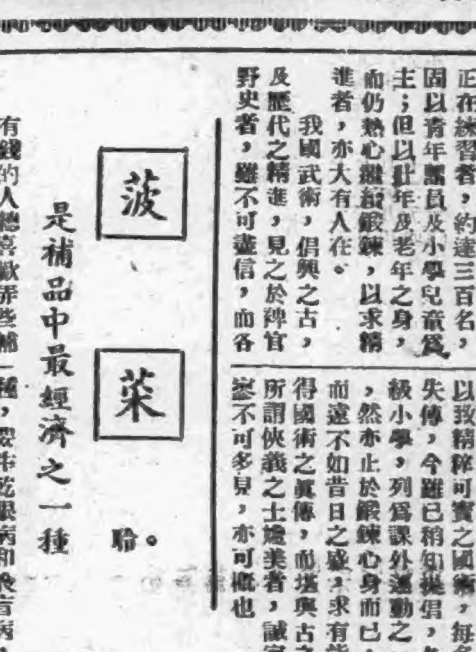 正在練習者，約達三百名，
固以青年團員及小學兒童爲
主；但以壯年及老年之身，
而仍熱心繼續鍛鍊，以求精
進者，亦大有人在。
我國武術，倡興之古，
及歷代之精進，見之於稗官
野史者，雖不可盡信，而各
以致精粹可寶之國術，每
失傳，今雖已稍知提倡，
級小學，列爲課外運動之
，然亦止於鍛鍊心身而已，
而遠不如昔日之盛，求有
得國術之眞傳，而堪與古之
所謂俠義之士媲美者，誠
寥不可多見，亦可慨也
。
菠菜
是補品中最經濟之一種
有錢的人總喜歡弄些補
種，眼病和夜盲病，